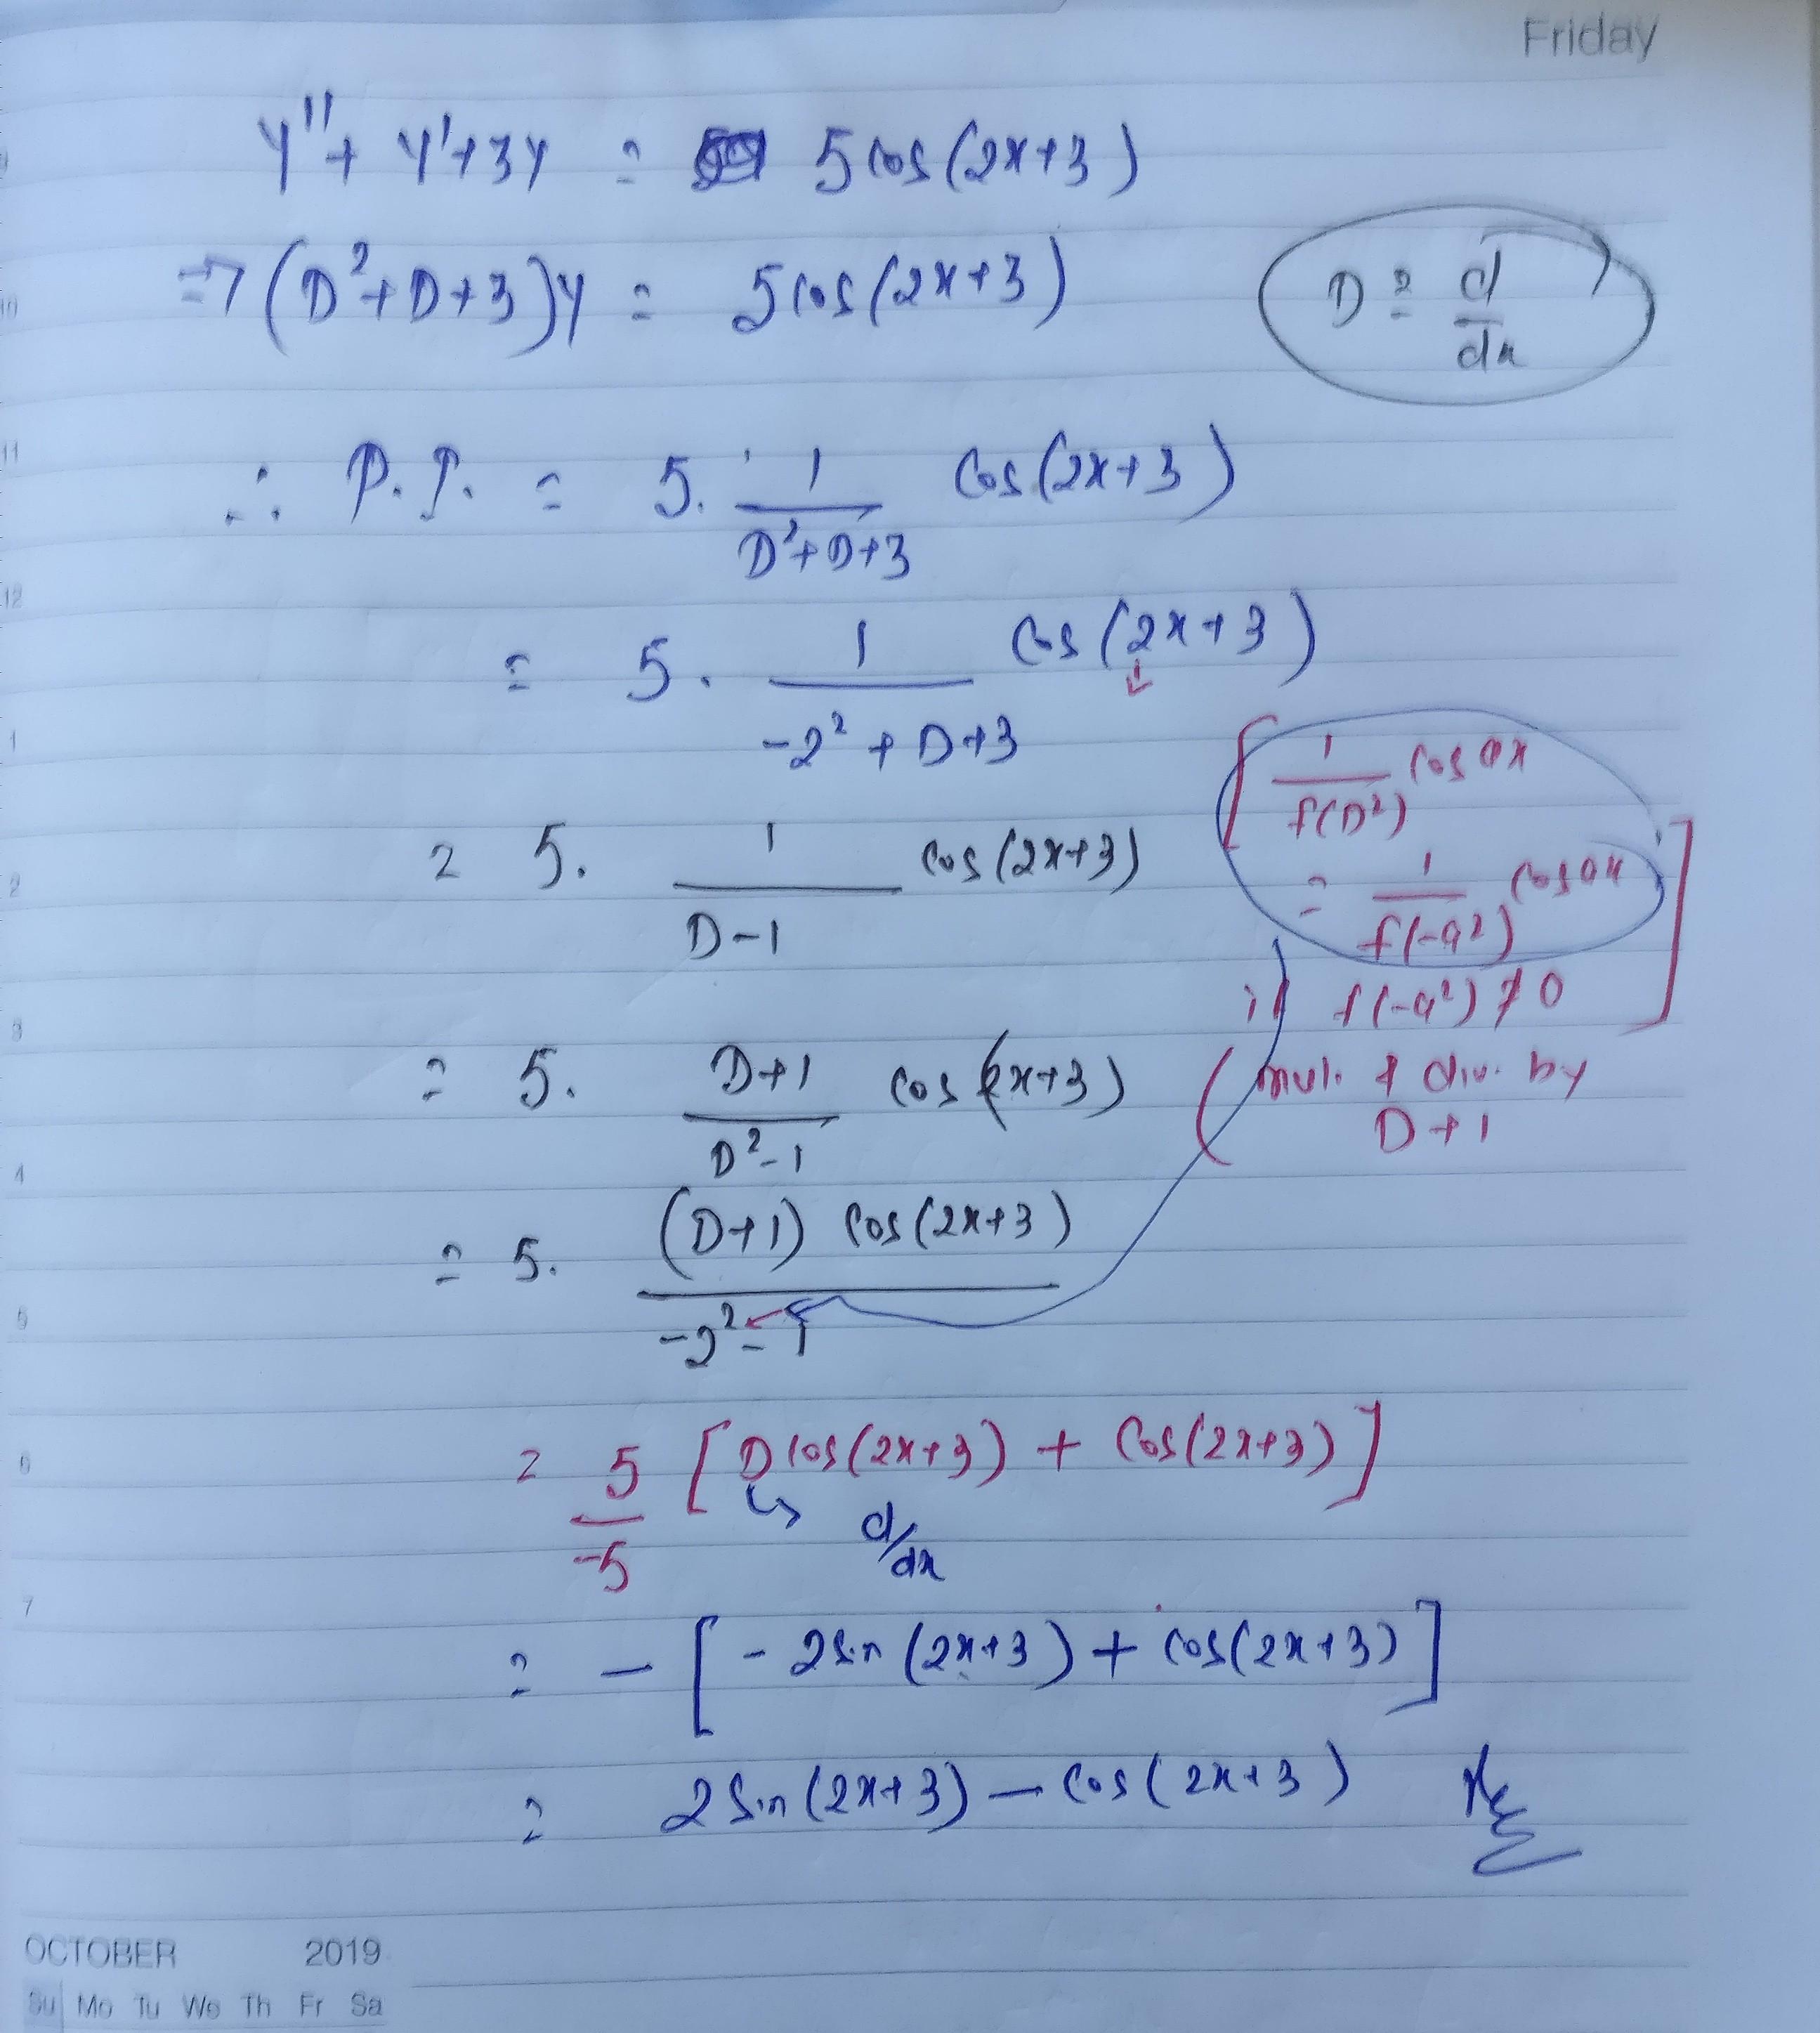 Friday
y'' + y' + 3y = 5cos(2x+3)
⇒ (D²+D+3)y = 5cos(2x+3)
D ≡ d/dx
∴ P.I. = 5. 1/(D²+D+3) cos(2x+3)
= 5. 1/(-2²+D+3) cos(2x+3)
= 5. 1/(D-1) cos(2x+3)
[1/f(D²) cos ax
= 1/f(-a²) cos ax
if f(-a²) ≠ 0]
= 5. (D+1)/(D²-1) cos(2x+3)
(mul. & div. by
D+1
= 5. (D+1) cos(2x+3)/(-2²-1)
= 5/-5 [D cos(2x+3) + cos(2x+3)]
↳ d/dx
= - [-2sin(2x+3) + cos(2x+3)]
= 2 sin(2x+3) - cos(2x+3)
OCTOBER 2019
Su Mo Tu We Th Fr Sa
9
10
11
12
1
2
3
4
5
6
7